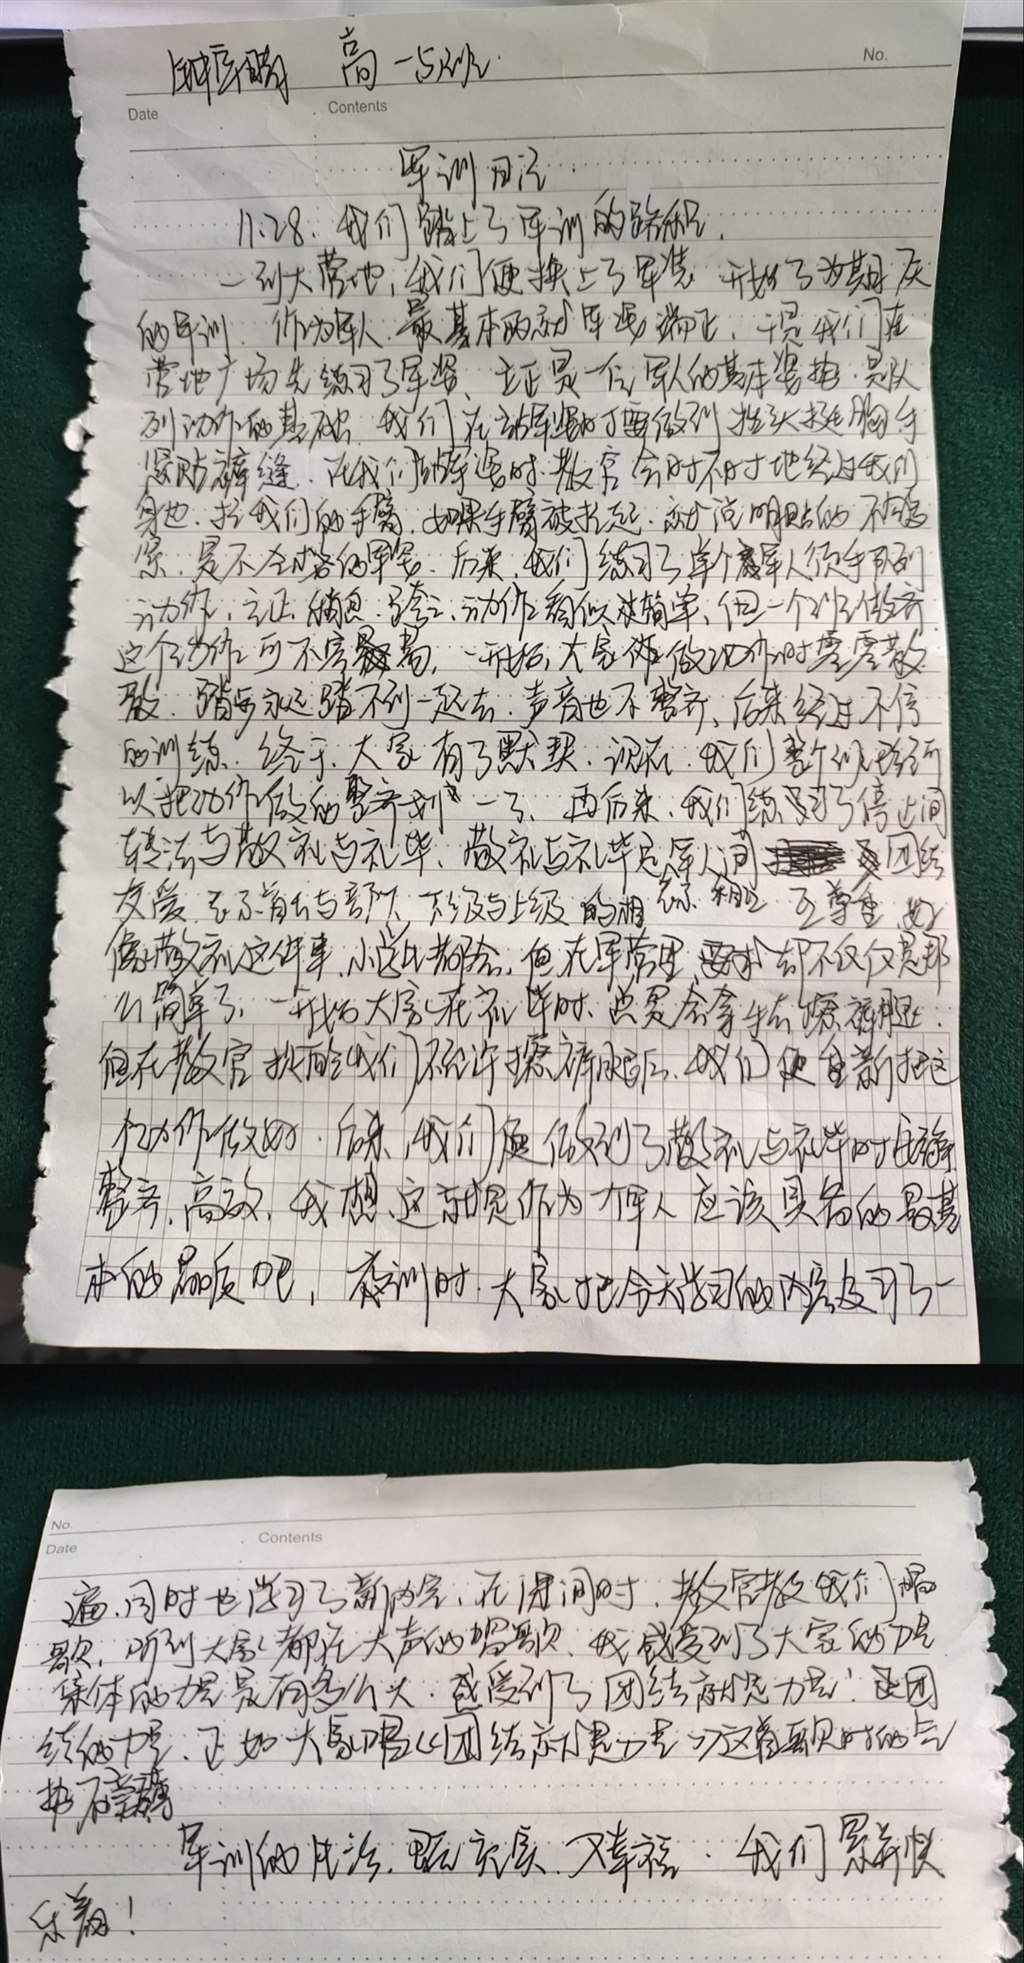 高一5班
No.
Date
Contents
军训日记
11.28.我们踏上了军训的路程.
一到大营地,我们便换上了军装.开始了为期
的军训.作为军人.最基本的就军姿端正.于是我们在
营地广场先练习了军姿.立正是一位军人的基本姿势.是队
列动作的基础.我们在站军姿时要做到抬头挺胸手
紧贴裤缝.在我们站军姿时.教官会时不时地经过我们
身边.抬我们的手臂.如果手臂被抬起.就说明贴的不够
紧.是不合格的军姿.后来,我们练习了单个军人徒手队列
动作,立正.稍息.跨立.动作看似很简单,但一个班做齐
这个动作可不容易,一开始,大家做动作时零零散
散.踏步永远踏不到一起去.声音也不整齐,后来经过不停
的训练.终于.大家有了默契.现在.我们整个班已经可
以把动作做的整齐划一了.再后来,我们练习了停止间
转法与敬礼与礼毕.敬礼与礼毕是军人间团结
友爱.表示首长与部队,下级与上级的相互尊重.
像敬礼这件事,小学生都会,但在军营里,却不仅仅是那
么简单了.一开始大家在礼毕时.总是会拿手去擦裤腿.
但在教官提醒我们不允许擦裤腿后.我们便重新把这
个动作做好.后来,我们便做到了敬礼与礼毕时安静
整齐,高效,我想,这就是作为一个军人应该具备的最基
本的品质吧,夜训时.大家把今天学习的内容复习了一
No.
Date
Contents
遍,同时也学习了新内容,在课间时,教官教我们唱
歌,听到大家都在大声的唱歌,我感受到了大家的力量
集体的力量是有多么大.感受到了团结就是力量!是团
结的力量,正如大家唱《团结就是力量》这首歌时的气
势
军训的生活.既充实.又幸福.我们累并快
乐着!